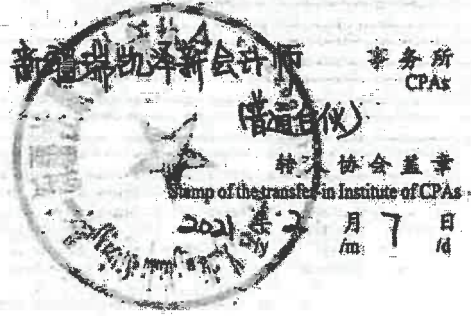 新疆瑞凯泽新会计师 事务所
CPAs
(普通合伙)
转入协会盖章
Stamp of the transfer-in Institute of CPAs
2021 年 2 月 7 日
/y /m /d